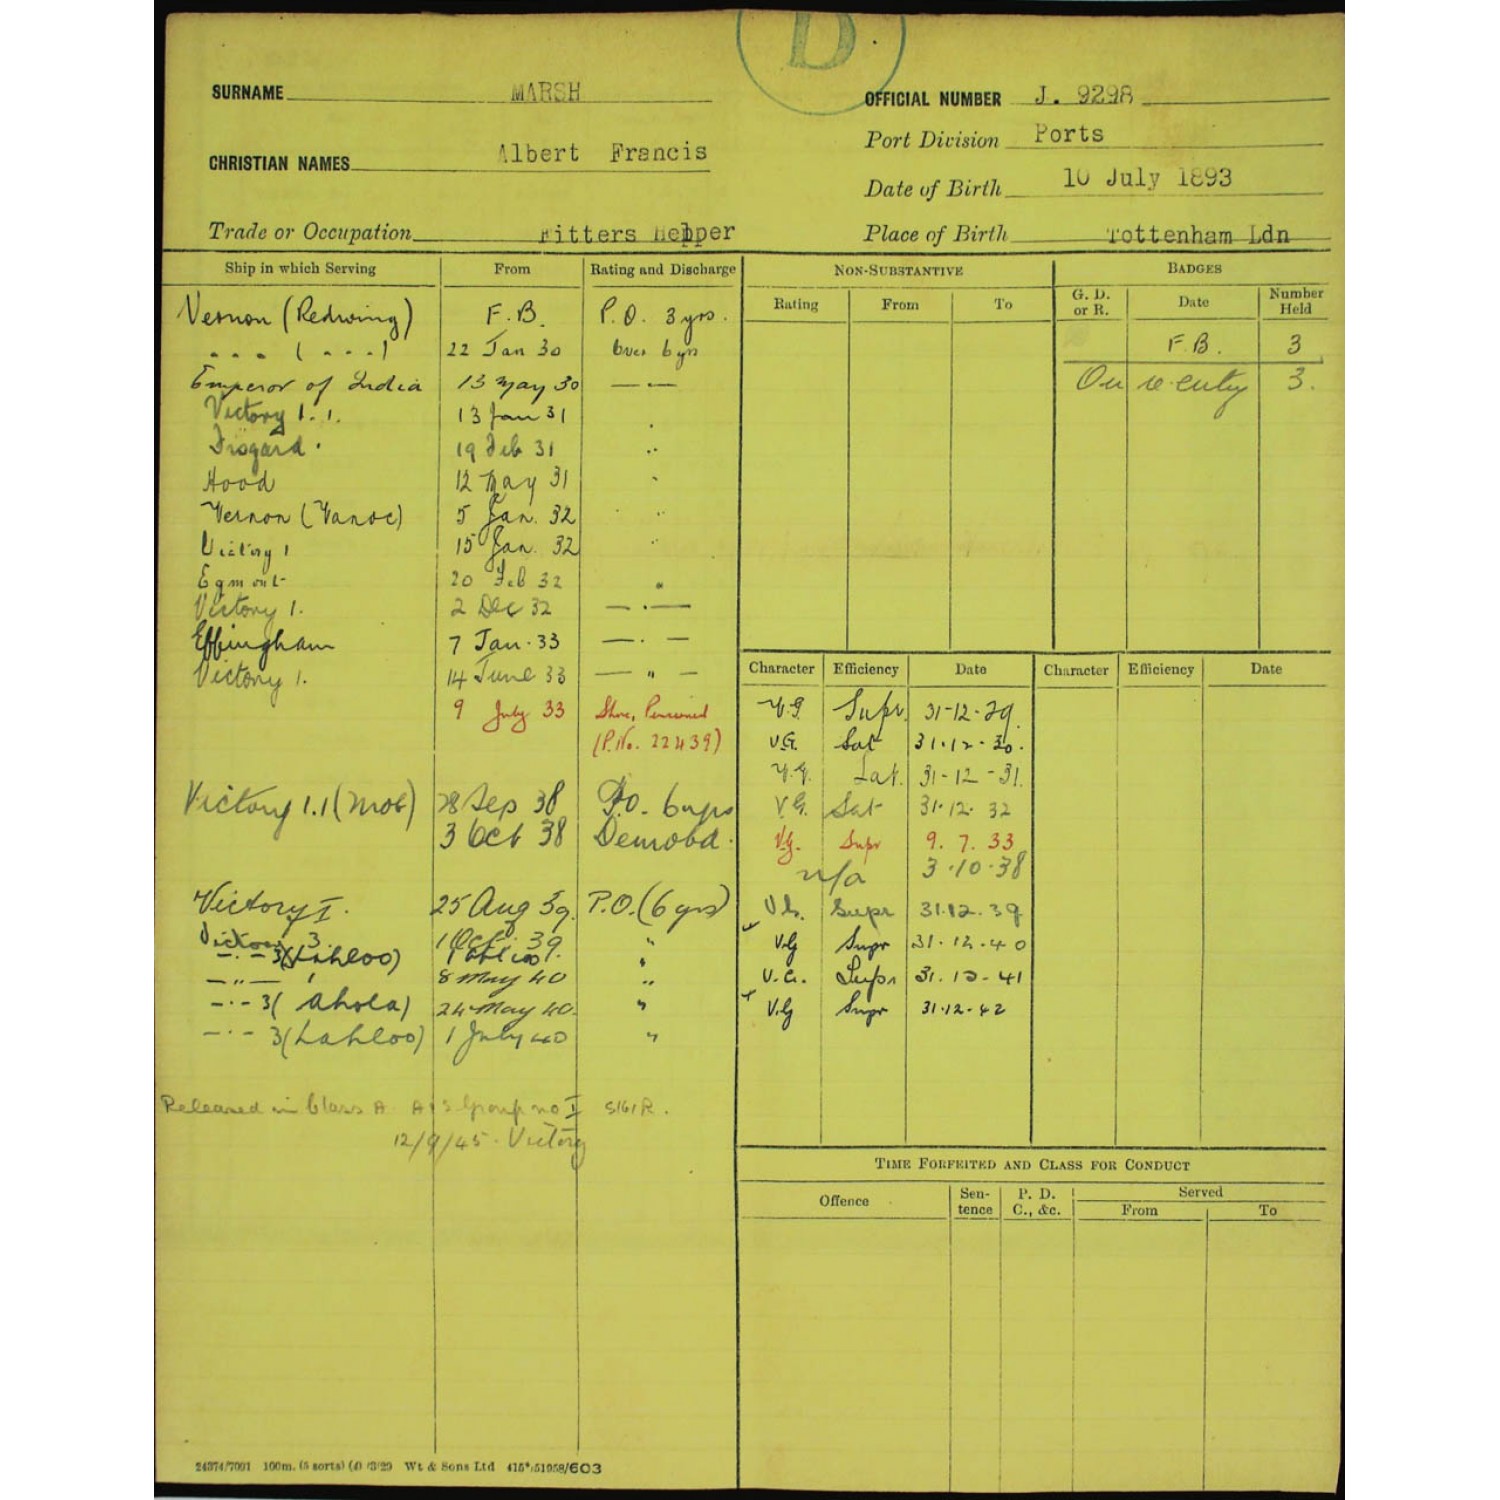 D
SURNAME MARSH
OFFICIAL NUMBER J. 9298
CHRISTIAN NAMES Albert Francis
Port Division Ports
Date of Birth 10 July 1893
Trade or Occupation Fitters Helper
Place of Birth Tottenham Ldn
Ship in which Serving From Rating and Discharge
Vernon (Redwing) F.B. P.O. 3 yrs.
" " " ( " " " ) 22 Jan 30 Over 6 yrs
Emperor of India 13 May 30 — " —
Victory 1. 1. 13 Jan 31 "
Fisgard. 19 Feb 31 "
Hood 12 May 31 "
Vernon (Vanoc) 5 Jan. 32 "
Victory 1 15 Jan. 32 "
Egmont 20 Feb 32 "
Victory 1. 2 Dec 32 — " —
Effingham 7 Jan. 33 — " —
Victory 1. 14 June 33 — " —
9 July 33 Shore, Pensioned
(P.No. 22439)
Victory 1.1 (Mob) 28 Sep 38 P.O. 6 yrs
3 Oct 38 Demobd.
Victory I. 25 Aug 39. P.O. (6 yrs)
Victory 3. 1 Oct. 39 "
— " — 3 (Lahloo) "
— " — 8 May 40 "
— " — 3 ( Ahola) 24 May 40. "
— " — 3 (Lahloo) 1 July 40 "
Released in Class A. A/S Group no I S161R.
12/9/45. Victory
NON-SUBSTANTIVE
Rating From To
BADGES
G. D. or R. Date Number Held
F.B. 3
On re-entry 3.
Character Efficiency Date Character Efficiency Date
V.G. Supr. 31-12-29.
V.G. Sat 31.12.30.
V.G. Sat. 31-12-31.
V.G. Sat 31.12.32
V.G. Supr 9. 7. 33
n/a 3.10.38
V.G. Supr 31.12.39
V.G Supr 31.12.40
V.G. Supr 31.12.41
V.G Supr 31.12.42
TIME FORFEITED AND CLASS FOR CONDUCT
Offence Sentence P. D. C., &c. Served
From To
24374/7001 100m. (5 sorts) (4) /3/29 Wt & Sons Ltd 415*/51958/603